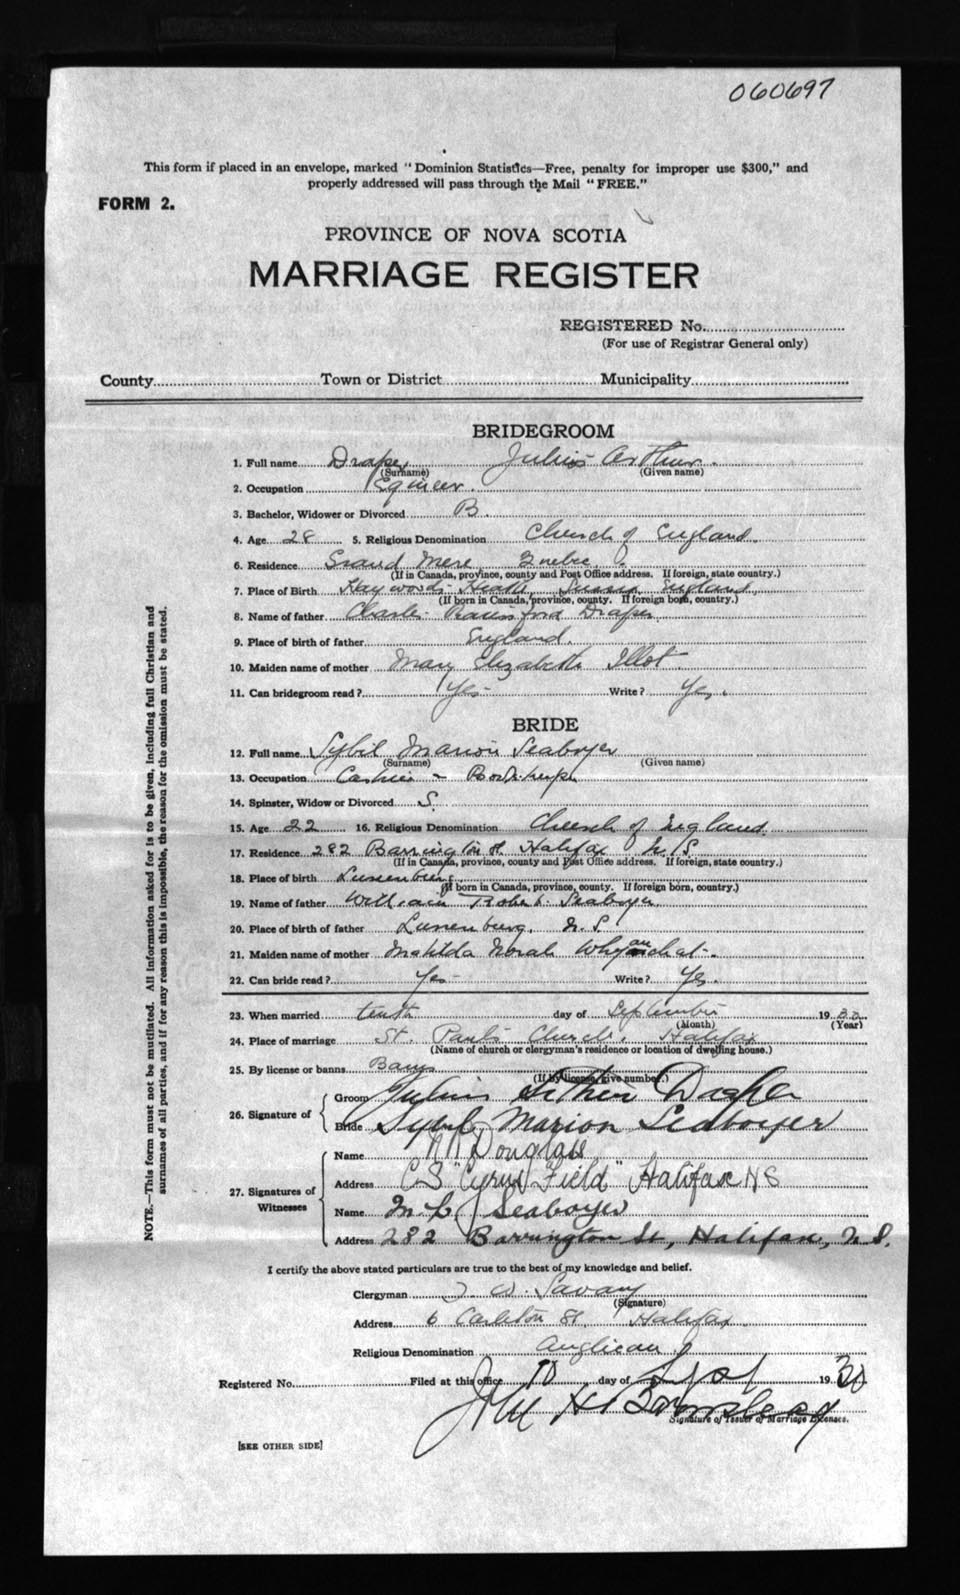 060697
This form if placed in an envelope, marked "Dominion Statistics—Free, penalty for improper use $300," and
properly addressed will pass through the Mail "FREE."
FORM 2.
PROVINCE OF NOVA SCOTIA
MARRIAGE REGISTER
REGISTERED No.
(For use of Registrar General only)
County Town or District Municipality
BRIDEGROOM
1. Full name Draper Julius Arthur.
(Surname) (Given name)
2. Occupation Egnieer.
3. Bachelor, Widower or Divorced B.
4. Age 28 5. Religious Denomination Church of England.
6. Residence Grand Mere Quebec.
(If in Canada, province, county and Post Office address. If foreign, state country.)
7. Place of Birth Haywords Heath Sussex England
(If born in Canada, province, county. If foreign born, country.)
8. Name of father Charles Draper.
9. Place of birth of father England.
10. Maiden name of mother Mary Elizabeth Illot
11. Can bridegroom read? Yes Write? Yes.
BRIDE
12. Full name Sybil Marion Seaboyer
(Surname) (Given name)
13. Occupation Cashier - Bookkeeper
14. Spinster, Widow or Divorced S.
15. Age 22 16. Religious Denomination Church of England.
17. Residence 282 Barrington St. Halifax N.S.
(If in Canada, province, county and Post Office address. If foreign, state country.)
18. Place of birth Lunenburg
(If born in Canada, province, county. If foreign born, country.)
19. Name of father William Robert Seaboyer.
20. Place of birth of father Lunenburg, N.S
21. Maiden name of mother Matilda Norah
22. Can bride read? Yes Write? Yes.
23. When married tenth day of September 1930
(Month) (Year)
24. Place of marriage St. Paul's Church, Halifax
(Name of church or clergyman's residence or location of dwelling house.)
25. By license or banns Banns
(If by license, give number.)
26. Signature of Groom Julius Arthur Draper
Bride Sybil Marion Seaboyer
27. Signatures of Witnesses
Name Douglass
Address CS "Cyrus Field" Halifax NS
Name M. L. Seaboyer
Address 282 Barrington St, Halifax, N.S.
I certify the above stated particulars are true to the best of my knowledge and belief.
Clergyman Savary
(Signature)
Address 6 Carleton St Halifax.
Religious Denomination Anglican
Registered No. Filed at this office 10 day of Sept 1930
Signature of Issuer of Marriage Licenses.
[SEE OTHER SIDE]
NOTE.—This form must not be mutilated. All information asked for is to be given, including full Christian and
surnames of all parties, and if for any reason this is impossible, the reason for the omission must be stated.